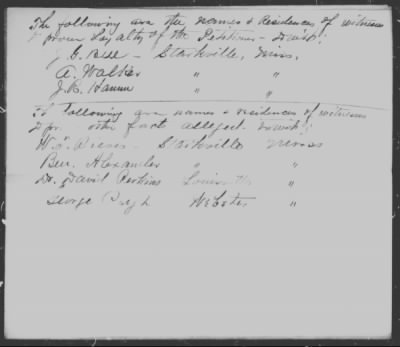 The following are the names & Residences of witnesses
to prove Loyalty of the Petitioner - towit:
J. C. Bell - Starkville, Miss.
A. Walker " "
J. B. Hannon " "
The following are names & residences of witnesses
to pr other facts alleged. towit:
W. Starkville Miss
Ben. Alexander " "
Dr. David Perkins Louisville "
George Webster "